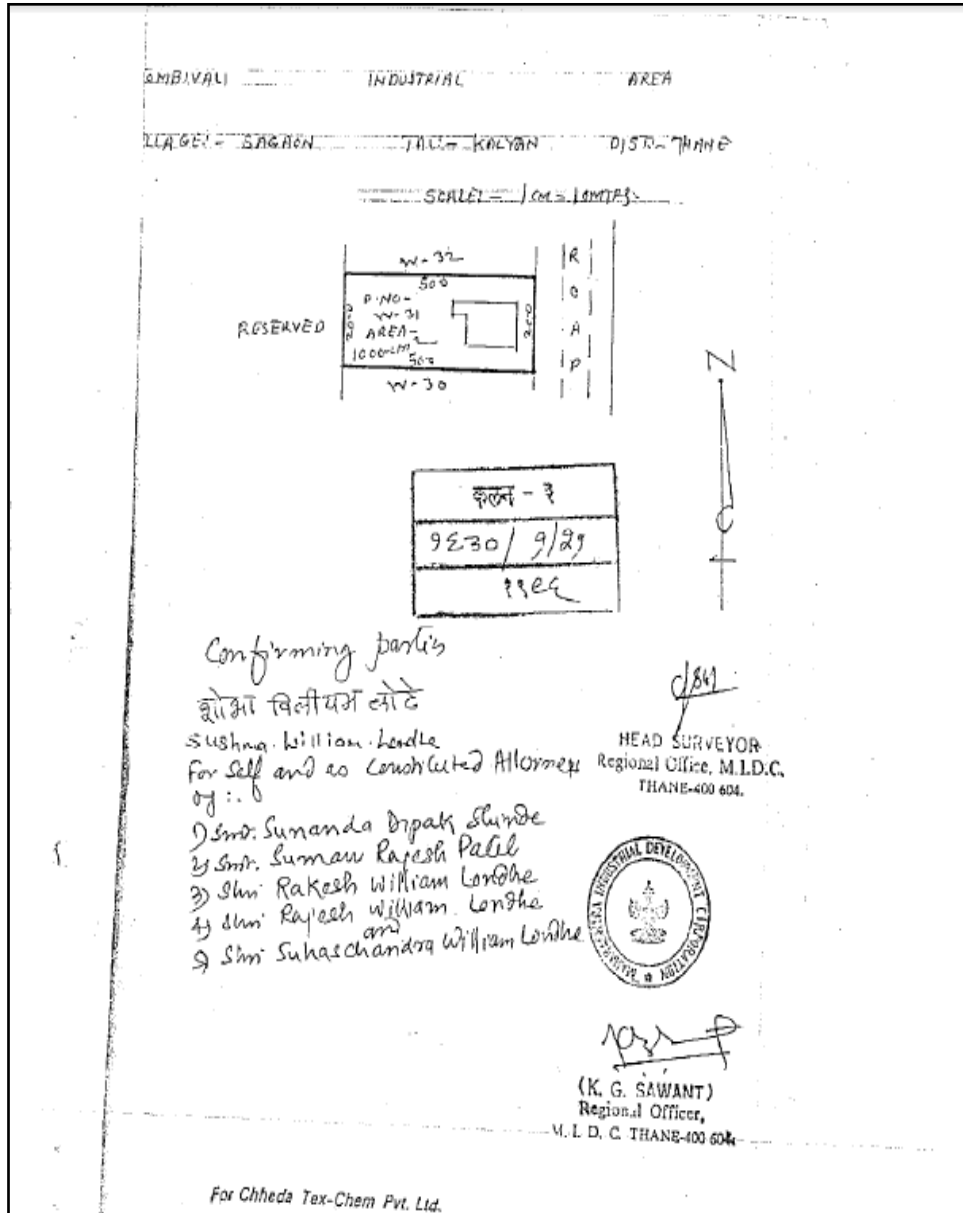 OMBIVALI INDUSTRIAL AREA
LLAGE:- SAGAON TAL:- KALYAN DIST:- THANE
SCALE:- 1 CM = 10 MTRS.
W-32
500
P. NO-
W-31
AREA-
1000
500
W-30
RESERVED
200
200
R
O
A
D
N
कलन - १
१६३०/ १/२१
११९६
Confirming parties
शोभा विलीयम लोंढे
Sushma. William. Londhe
For Self and as Constituted Attorney
of :-
1) Smt. Sunanda Dipak Shinde
2) Smt. Suman Rajesh Patil
3) Shri Rakesh William Londhe
4) Shri Rajesh William Londhe
and
5) Shri Suhaschandra William Londhe
HEAD SURVEYOR
Regional Office, M.I.D.C.
THANE-400 604.
MAHARASHTRA INDUSTRIAL DEVELOPMENT CORPORATION
(K. G. SAWANT)
Regional Officer,
M. I. D. C. THANE-400 604.
For Chheda Tex-Chem Pvt. Ltd.